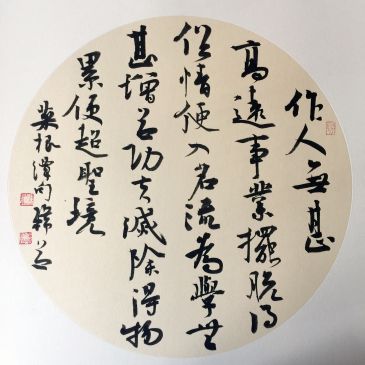 作人無甚
高遠事業擺脫得
俗情便入名流為學無
甚增益功夫減除得物
累便超聖境
菜根潭句